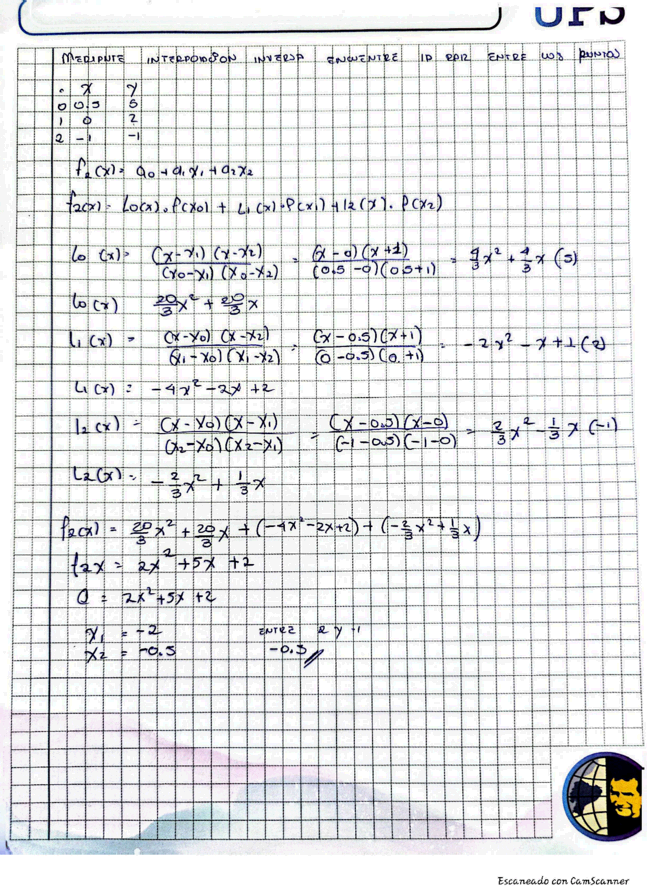 UPS
MEDIANTE INTERPOLACION INVERSA ENCUENTRE LA RAIZ ENTRE LOS PUNTOS
. X Y
0 0.5 5
1 0 2
2 -1 -1
f₂(x) = a₀ + a₁x₁ + a₂x₂
f₂(x) = L₀(x) . P(x₀) + L₁(x) . P(x₁) + l₂(x) . P(x₂)
L₀ (x) = (x-x₁)(x-x₂) / (x₀-x₁)(x₀-x₂) = (x-0)(x+1) / (0.5-0)(0.5+1) = 4/3 x² + 4/3 x (5)
L₀(x) 20/3 x² + 20/3 x
L₁(x) = (x-x₀)(x-x₂) / (x₁-x₀)(x₁-x₂) = (x-0.5)(x+1) / (0-0.5)(0+1) = -2x² - x + 1 (2)
L₁(x) = -4x² - 2x + 2
l₂(x) = (x-x₀)(x-x₁) / (x₂-x₀)(x₂-x₁) = (x-0.5)(x-0) / (-1-0.5)(-1-0) = 2/3 x² - 1/3 x (-1)
L₂(x) = -2/3 x² + 1/3 x
f₂(x) = 20/3 x² + 20/3 x + (-4x² - 2x + 2) + (-2/3 x² + 1/3 x)
f₂x = 2x² + 5x + 2
0 = 2x² + 5x + 2
x₁ = -2 ENTRE 2 y -1
x₂ = -0.5 -0.5
Escaneado con CamScanner